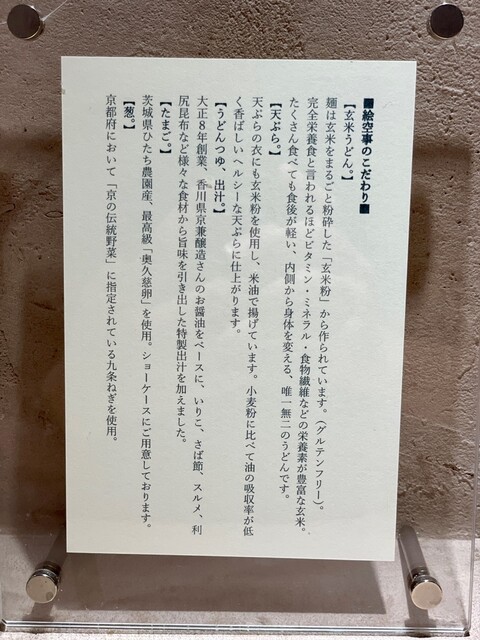 ■絵空事のこだわり■
【玄米うどん。】
麺は玄米をまるごと粉砕した「玄米粉」から作られています。（グルテンフリー）。
完全栄養食と言われるほどビタミン・ミネラル・食物繊維などの栄養素が豊富な玄米。
たくさん食べても食後が軽い、内側から身体を変える、唯一無二のうどんです。
【天ぷら。】
天ぷらの衣にも玄米粉を使用し、米油で揚げています。小麦粉に比べて油の吸収率が低
く香ばしいヘルシーな天ぷらに仕上がります。
【うどんつゆ、出汁。】
大正８年創業、香川県京兼醸造さんのお醤油をベースに、いりこ、さば節、スルメ、利
尻昆布など様々な食材から旨味を引き出した特製出汁を加えました。
【たまご。】
茨城県ひたち農園産、最高級「奥久慈卵」を使用。ショーケースにご用意しております。
【葱。】
京都府において「京の伝統野菜」に指定されている九条ねぎを使用。